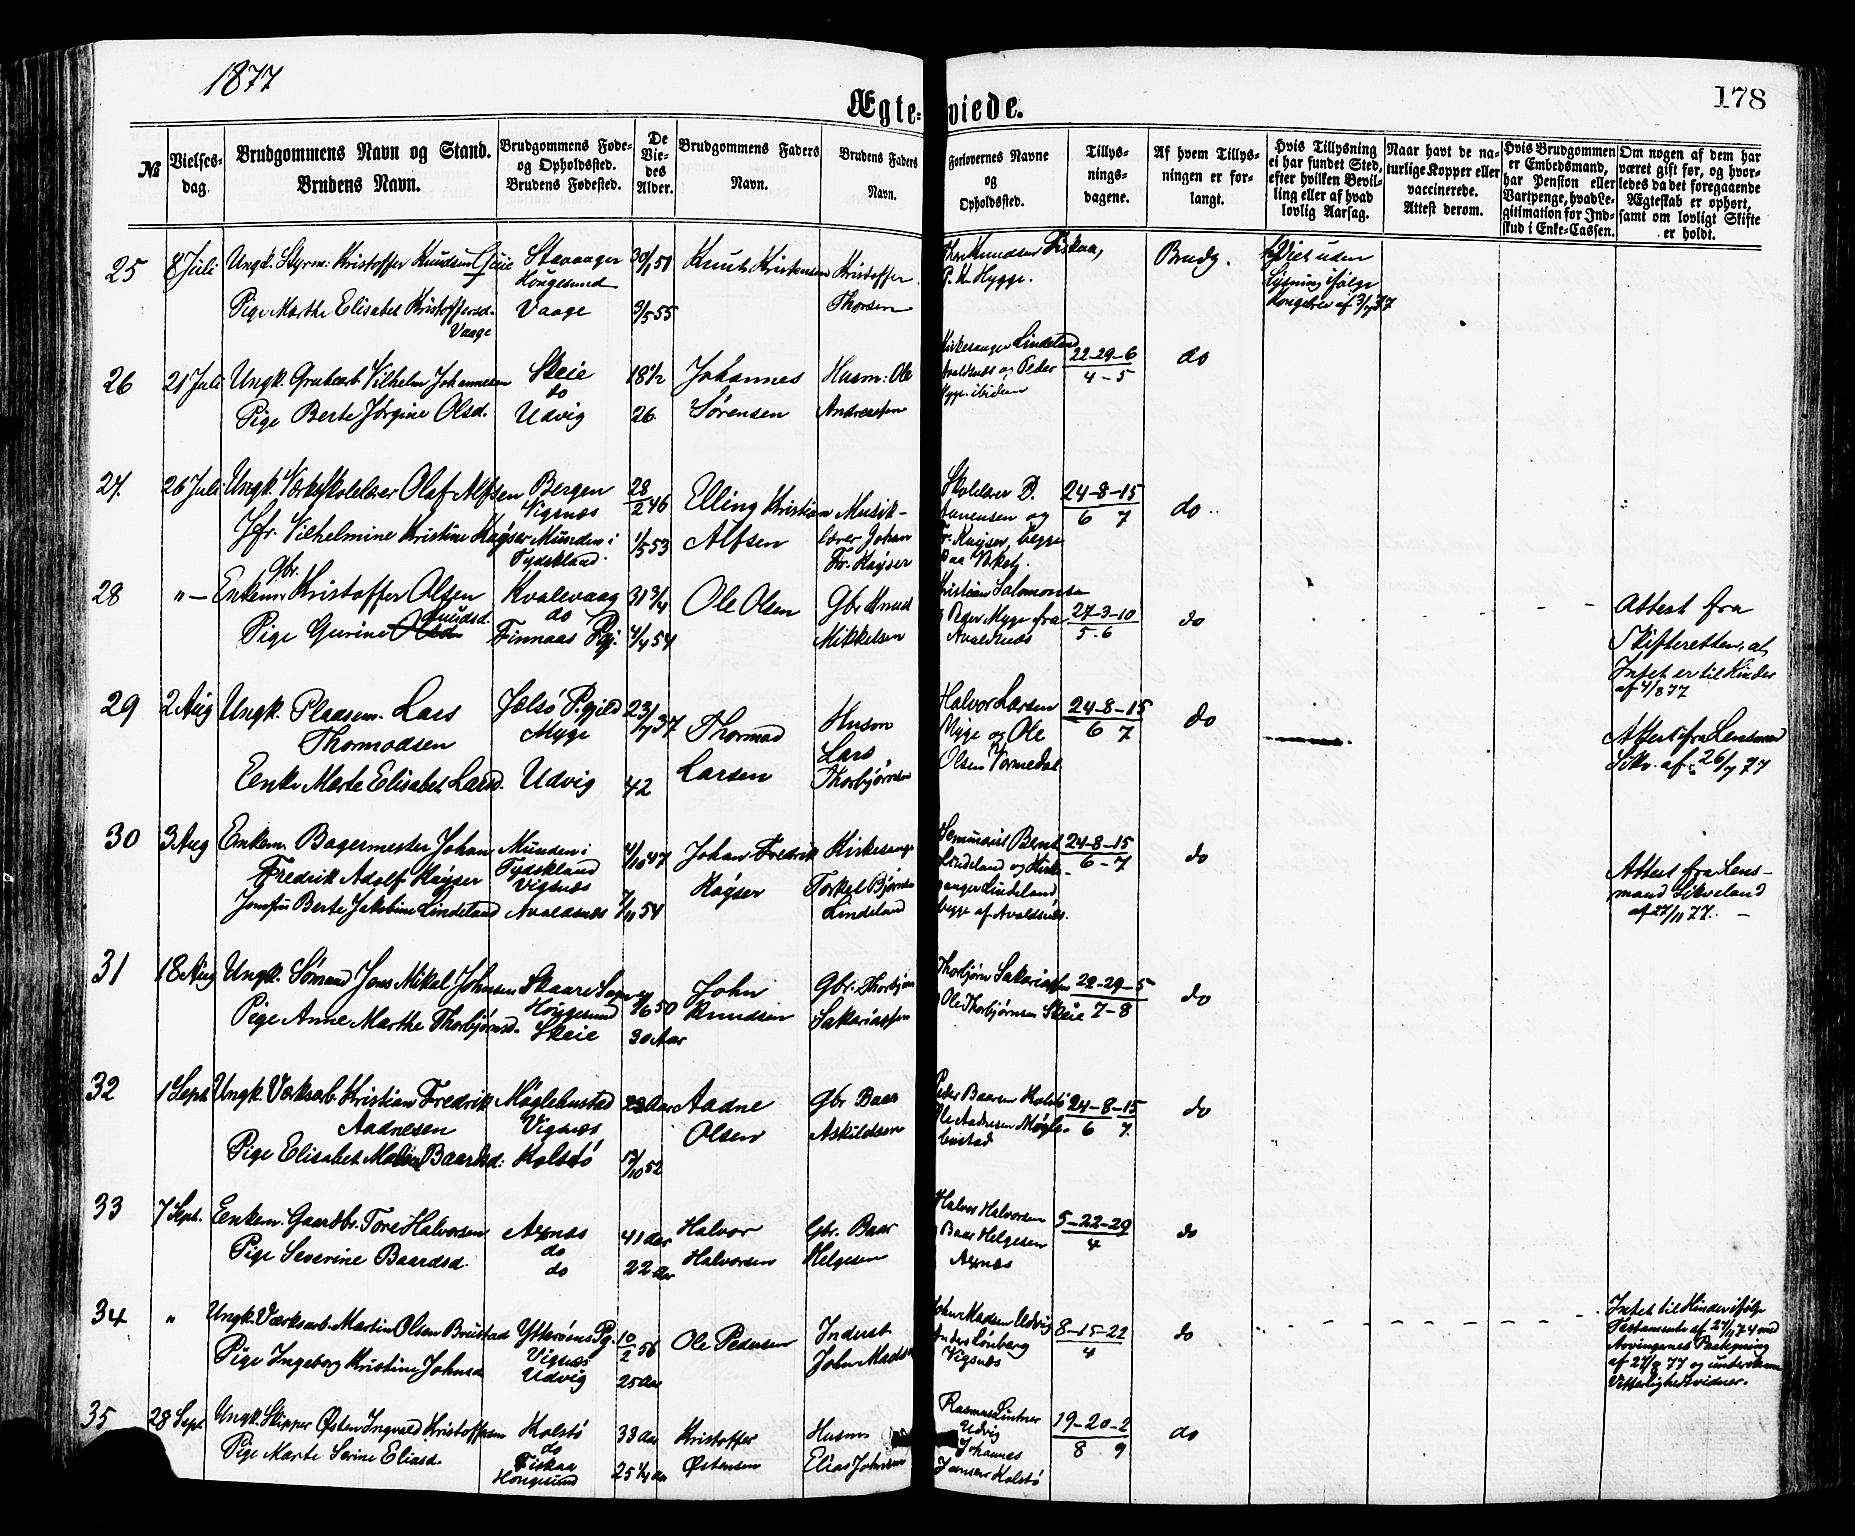 1877
Ægteviede.
178
№
Vielses-
dag.
Brudgommens Navn og Stand.
Brudens Navn.
Brudgommens Føde-
og Opholdssted.
Brudens Fødested.
De
Vie-
des
Alder.
Brudgommens Faders
Navn.
Brudens Faders
Navn.
Forlovernes Navne
og
Opholdssted.
Tillys-
nings-
dagene.
Af hvem Tillys-
ningen er for-
langt.
Hvis Tillysning
ei har fundet Sted,
efter hvilken Bevil-
ling eller af hvad
lovlig Aarsag.
Naar havt de na-
turlige Kopper eller
vaccinerede.
Attest derom.
Hvis Brudgommen
er Embedsmand,
har Pension eller
Vartpenge, hvad Le-
gitimation for Ind-
skud i Enke-Cassen.
Om nogen af dem har
været gift før, og hvor-
ledes da det foregaaende
Ægteskab er ophørt,
samt om lovligt Skifte
er holdt.
25
8 Juli
Ungk. Styrm: Kristoffer Knudsen Gjeie
Pige Marthe Elisabet Kristoffersd.
Vaage
Stavanger
Hougesund
Vaage
3/5 55
Knut Kristensen
Kristoffer
Thorsen
Thor Knudsen Fiskaa,
P. K. Hygge.
Brudg.
Viet uden
Lysning ifølge
Kongebrev af 3/7 77
26
21 Juli
Ungk. Grubearb. Vilhelm Johannesen
Pige Berte Jørgine Olsd.
Skeie
do
Udvig
18 1/2
26
Johannes
Sørensen
Husm: Ole
Andreassen
Kirkesanger Lindeland
Avaldsnæs og Peder
Myge ibidem
22-29-6
4-5
do
27.
26 Juli
Ungk. Værksskolelærer Olaf Alfsen
Jfr. Vilhelmine Kristine Kayser
Bergen
Vigsnæs
Münden i
Tydskland
28
2 46
1/5 53
Elling Kristian
Alfsen
Musik-
lærer Johan
Fr. Kayser
Skolelærer P.
og
Fr. Kayser, begge
paa Værket.
24-8-15
6 7
do
28
"
gbr.
Enkem. Kristoffer Olsen
Knudsd.
Pige Gurine Olsd.
Kvalevaag
do
Finnaas Pgj.
31 3/4
4/4 54
Ole Olsen
Gbr Knud
Mikkelsen
Kristian Salomonsen
Peder Myge fra
Avaldsnæs
27-3-10
5-6
do
Attest fra
Skifteretten, at
Intet er til Hinder
af 4/8 77
29
2 Aug
Ungk. Pladsem. Lars
Thormodsen
Eenke Marte Elisabet Larsd.
Jelsø P.gjeld
Myge
Udvig
23/7 37
42
Thormod
Larsen
Husm
Lars
Thorbjørnsen
Halvor Larsen
Myge og Ole
Olsen Vormedal
24-8-15
6 7
do
Attest fra Lensmand
Sikv. af 26/7 77
30
3 Aug
Enkem. Bagermester Johan
Fredrik Adolf Kayser
Jomfru Berte Jakobine Lindeland
Münden i
Tydskland
Vigsnæs
Avaldsnæs
4/10 47
7/11 54
Johan Fredrik
Kayser
Kirkesanger
Torkel Bjørnsen
Lindeland
Seminarist Bernt
Lindeland og Kirke-
sanger Lindeland
begge af Avaldsnæs.
24-8-15
6-7
do
Attest fra Lens-
mand Sikveland
af 27/11 77.
31
18 Aug
Ungk. Sømand Jens Mikal Johnsen
Pige Anne Marthe Thorbjørnsd.
Skaare Sogn
Houggesund
Skeie
4/6 50
30 Aar
John
Knudsen
Gbr. Thorbjørn
Sakariassen
Thorbjørn Sakariassen
Ole Thorbjørnsen Skeie
22-29-5
7-8
do
32
1 Sept
Ungk. Værksarb. Kristian Fredrik
Aadnesen
Pige Elisabet Malin Baardsd:
Møglebustad
Vigsnæs
Kolstø
28 Aar
13/10 52
Aadne
Olsen
Gbr Baar
Askildsen
Peder Baarsen Kolstø
Ole Aadnesen Møgle-
bustad
24-8-15
6 7.
do
33
7 Sept.
Eenkem. Gaardbr. Tore Halvorsen
Pige Severine Baardsd.
Axnæs
do
do
41 aar
22 Aar
Halvor
Halvorsen
Gbr. Baar
Helgesen
Halvor Halvorsen
Baar Helgesen
Axnæs
5-22-29
4
do
34
"
Ungk. Værksarb. Martin Olsen Brustad
Pige Ingeborg Kristine Johnsd
Ytterøens Pg.
Vigsnæs
Udvig
10
2 56
25 Aar
Ole Pedersen
Inderst
John Madsen
John Madsen Udvig
Anders Lønberg
Vigsnæs
8-15-22
4
do
Intet til Hinder ifølge
Testamente af 27/11 74 med
Arvingernes Paategning
af 27/8 77 og underskrevne
Vitterlighedsvidner.
35
28 Sept
Ungk. Skipper Østen Ingvald Kristoffersen
Pige Marte Serine Eliasd.
Kolstø
do
Fiskaa
Hongesund
33 Aar
25 1/4 Aar
Kristoffer
Østensen
Husm.
Elias Johnsen
Rasmus Lintner
Udvig
Johannes
Jansen Kolstø
19-20-2
8 9
do